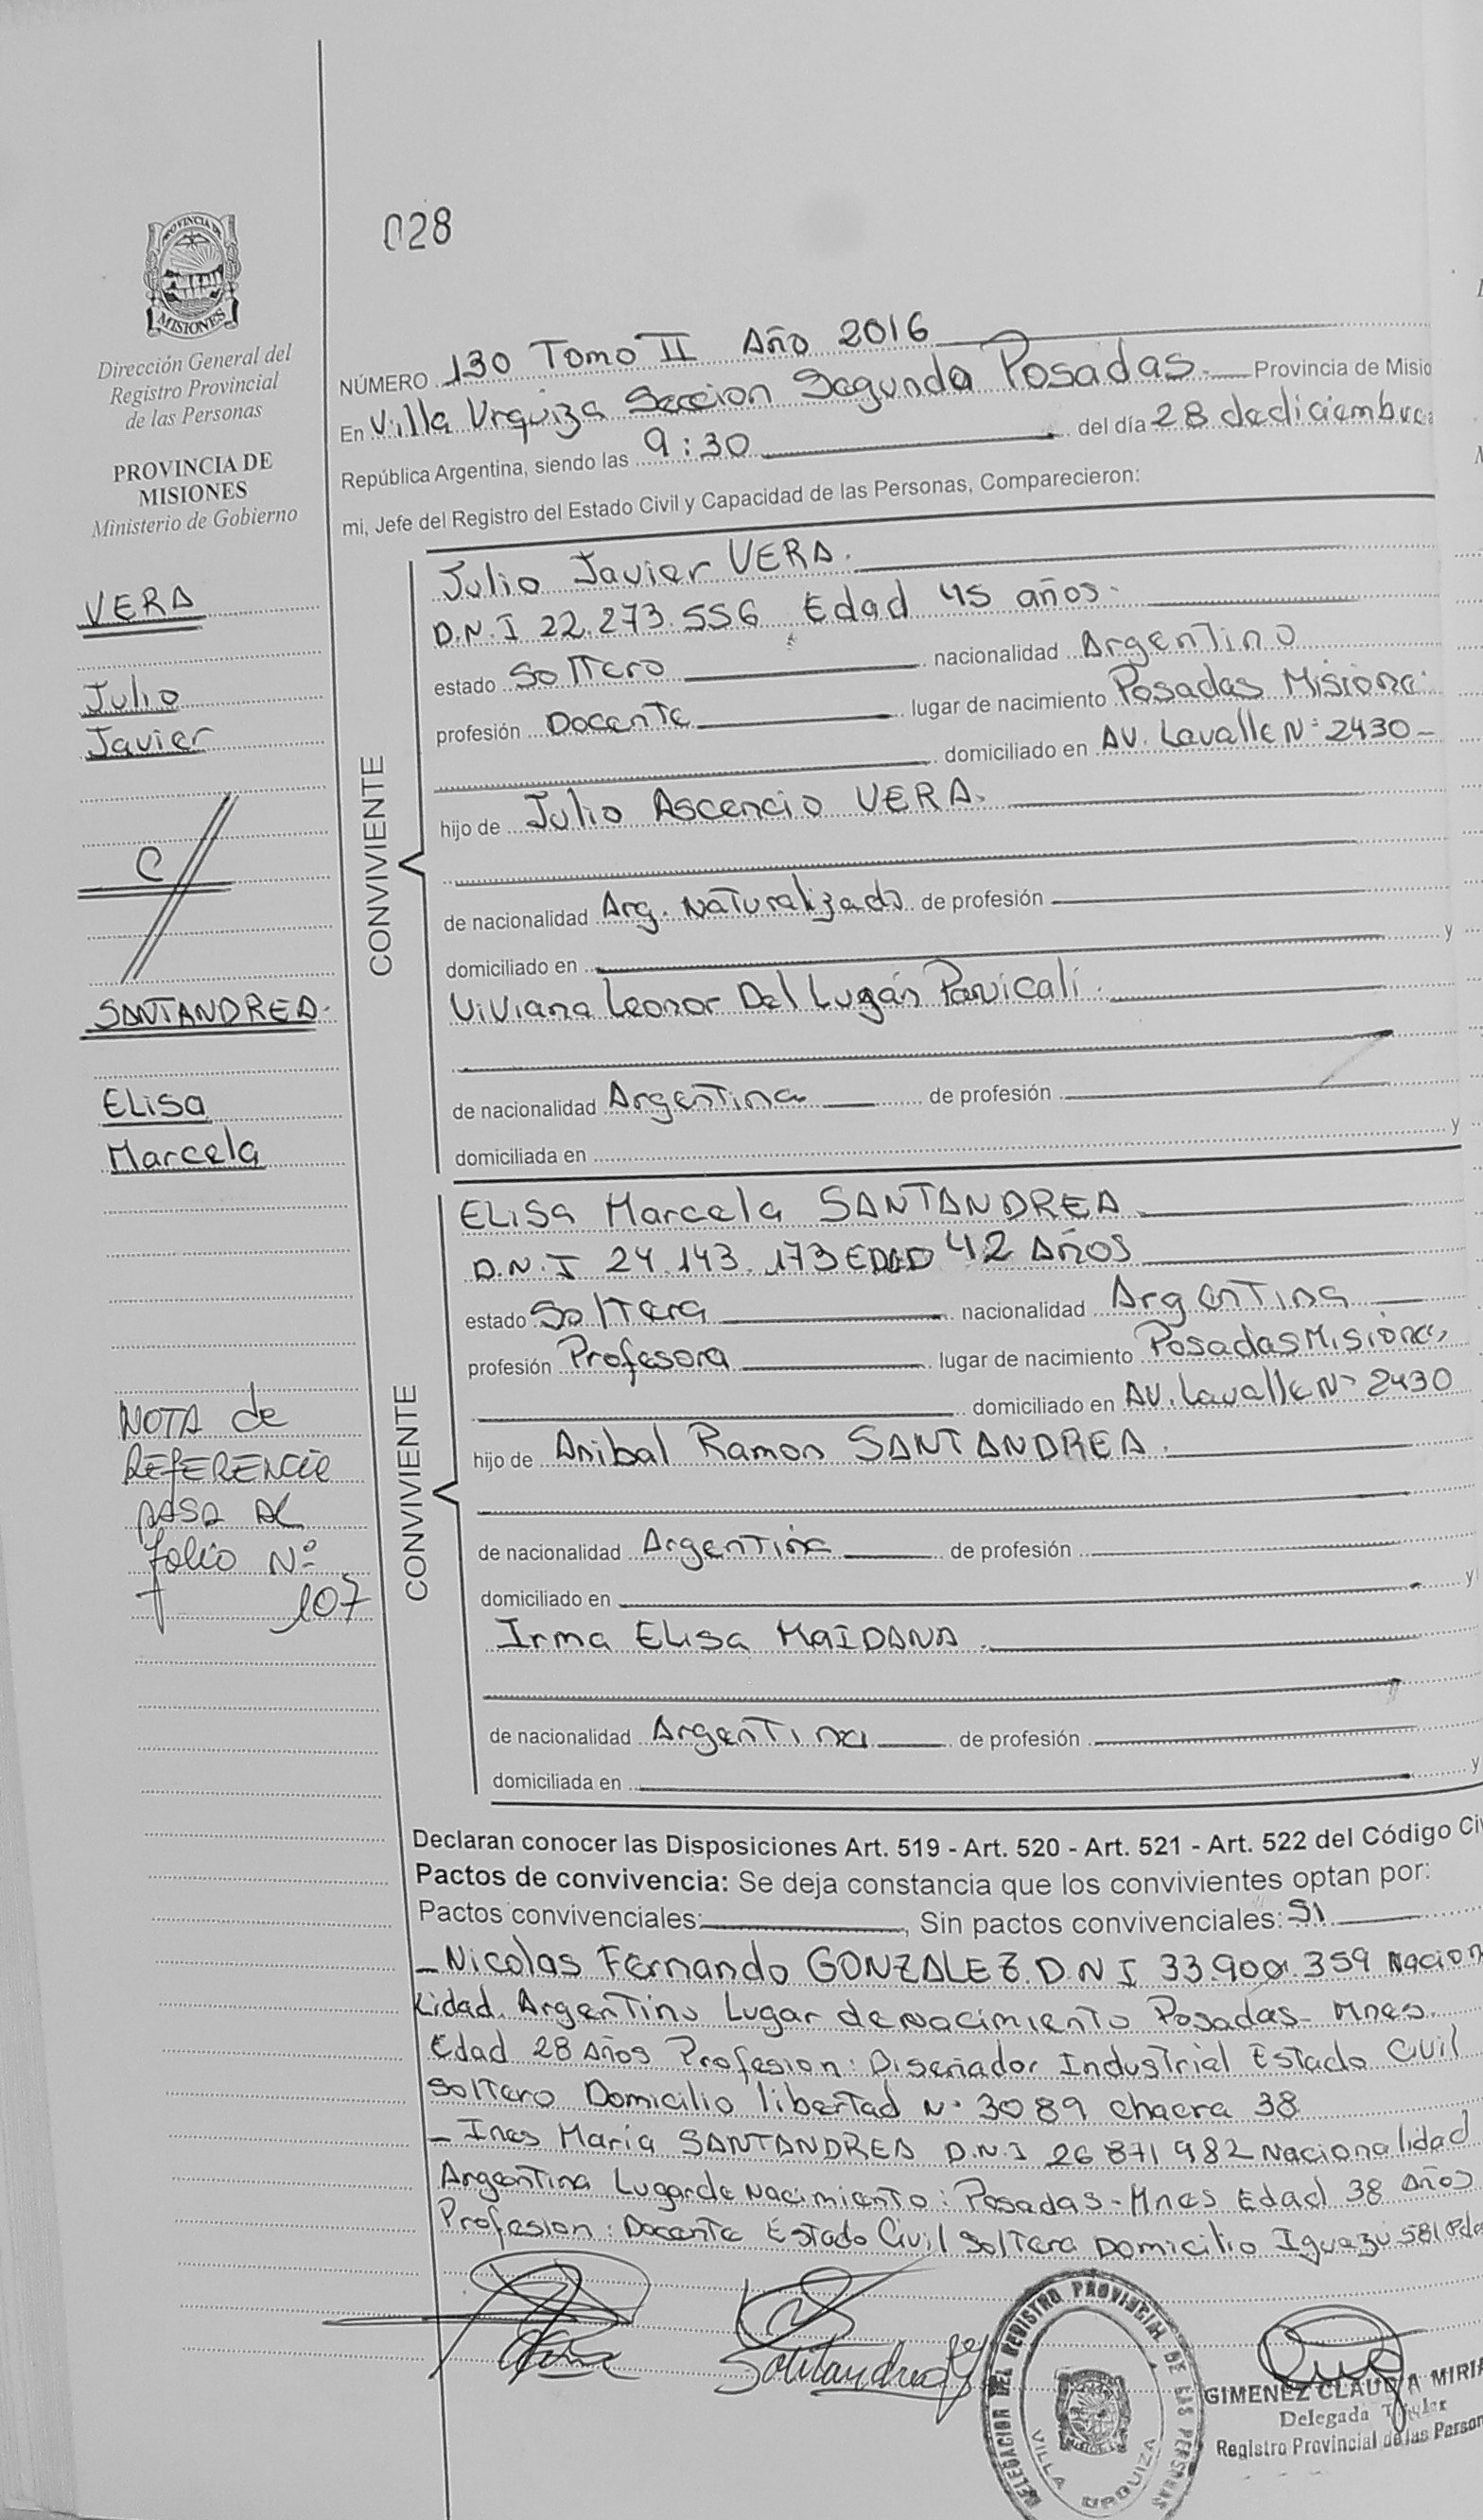 028
PROVINCIA DE
MISIONES
Dirección General del
Registro Provincial
de las Personas
PROVINCIA DE
MISIONES
Ministerio de Gobierno
VERA
Julio
Javier
C/
SANTANDREA.
Elisa
Marcela
NOTA de
REFERENCIA
PASA AL
folio Nº
107
NÚMERO 130 Tomo II Año 2016
En Villa Urquiza Seccion Segunda Posadas. Provincia de Misio
República Argentina, siendo las 9:30 del día 28 de diciembre
mi, Jefe del Registro del Estado Civil y Capacidad de las Personas, Comparecieron:
CONVIVIENTE
Julio Javier VERA.
D.N.I 22.273.556 Edad 45 años.
estado Soltero nacionalidad Argentino
profesión Docente lugar de nacimiento Posadas Misiones
domiciliado en AV. Lavalle Nº 2430
hijo de Julio Ascencio VERA.
de nacionalidad Arg. Naturalizado de profesión
domiciliado en y
Viviana Leonor Del Luján
de nacionalidad Argentina de profesión
domiciliada en y
CONVIVIENTE
Elisa Marcela SANTANDREA
D.N.I 24.143.173 EDAD 42 Años
estado Soltera nacionalidad Argentina
profesión Profesora lugar de nacimiento Posadas Misiones
domiciliado en AV. Lavalle Nº 2430
hijo de Anibal Ramon SANTANDREA.
de nacionalidad Argentina de profesión
domiciliado en y
Irma Elisa MAIDANA
de nacionalidad Argentina de profesión
domiciliada en y
Declaran conocer las Disposiciones Art. 519 - Art. 520 - Art. 521 - Art. 522 del Código Civ
Pactos de convivencia: Se deja constancia que los convivientes optan por:
Pactos convivenciales: , Sin pactos convivenciales: Si
- Nicolas Fernando GONZALEZ. D N I 33.900.359 Nacion
lidad. Argentino Lugar de Nacimiento Posadas - Mnes.
Edad 28 Años Profesion: Diseñador Industrial Estado Civil
Soltero Domicilio libertad Nº 3089 chacra 38
- Ines Maria SANTANDREA D.N.I 26 871 982 Nacionalidad
Argentina Lugar de Nacimiento: Posadas - Mnes Edad 38 Años
Profesion: Docente Estado Civil Soltera Domicilio Iguazu 581 Pdas
DELEGACION DEL REGISTRO PROVINCIAL DE LAS PERSONAS
VILLA URQUIZA
GIMENEZ CLAUDIA MIRIA
Delegada Titular
Registro Provincial de las Person